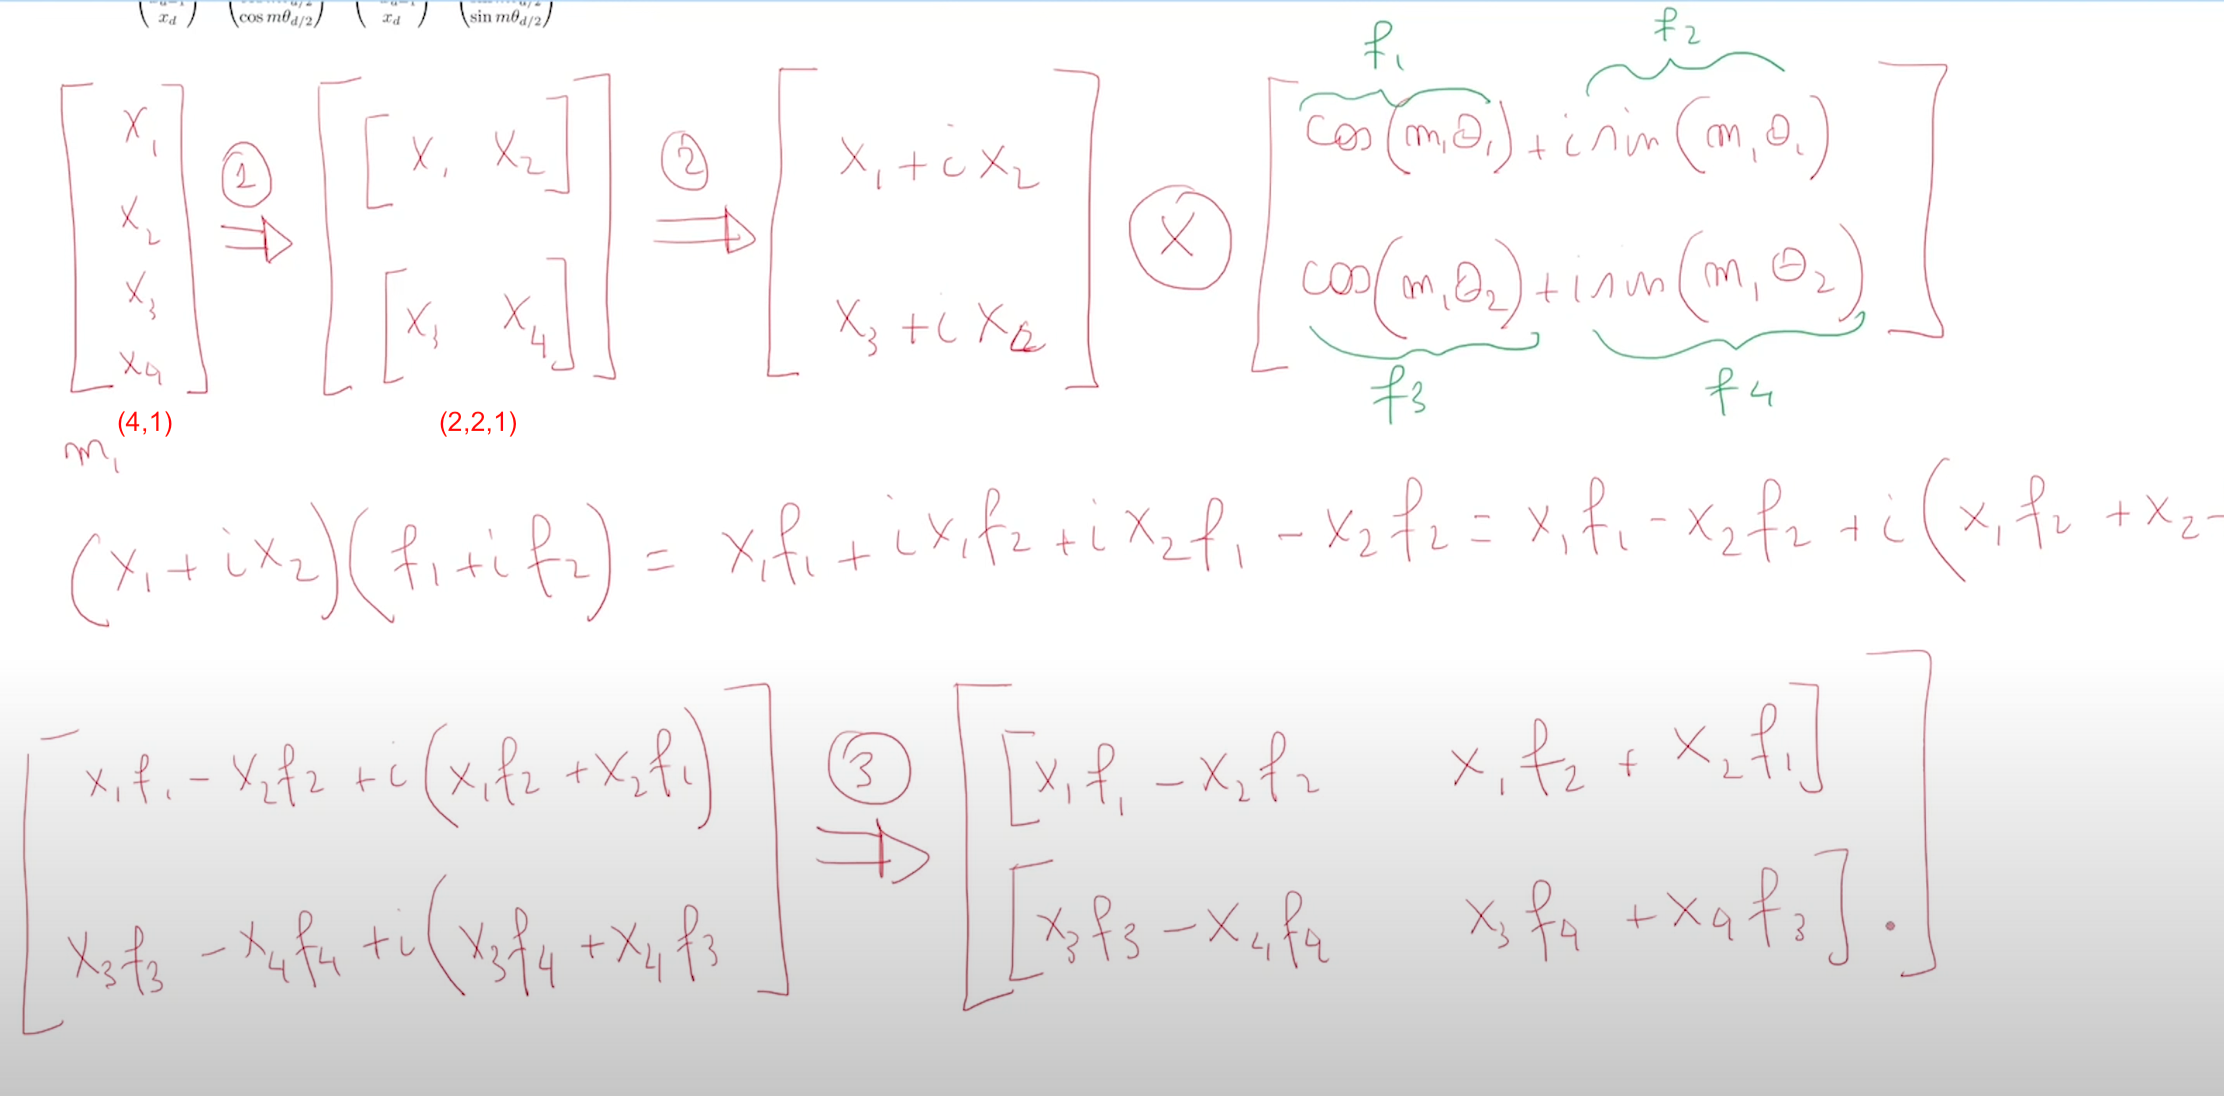 x_d cos mθ_{d/2} x_d sin mθ_{d/2}
f₁ f₂
[x₁ x₂ x₃ x₄] ① ⇒ [[x₁ x₂] [x₃ x₄]] ② ⇒ [x₁ + i x₂ x₃ + i x₂] ⊗ [cos(m₁θ₁) + i sin(m₁θ₁) cos(m₁θ₂) + i sin(m₁θ₂)]
f3 f4
(4,1) (2,2,1)
m₁
(x₁ + i x₂)(f₁ + i f₂) = x₁f₁ + i x₁f₂ + i x₂f₁ - x₂f₂ = x₁f₁ - x₂f₂ + i(x₁f₂ + x₂
[x₁f₁ - x₂f₂ + i(x₁f₂ + x₂f₁) ③ ⇒ [[x₁f₁ - x₂f₂ x₁f₂ + x₂f₁]
x₃f₃ - x₄f₄ + i(x₃f₄ + x₄f₃] [x₃f₃ - x₄f₄ x₃f₄ + x₄f₃]].